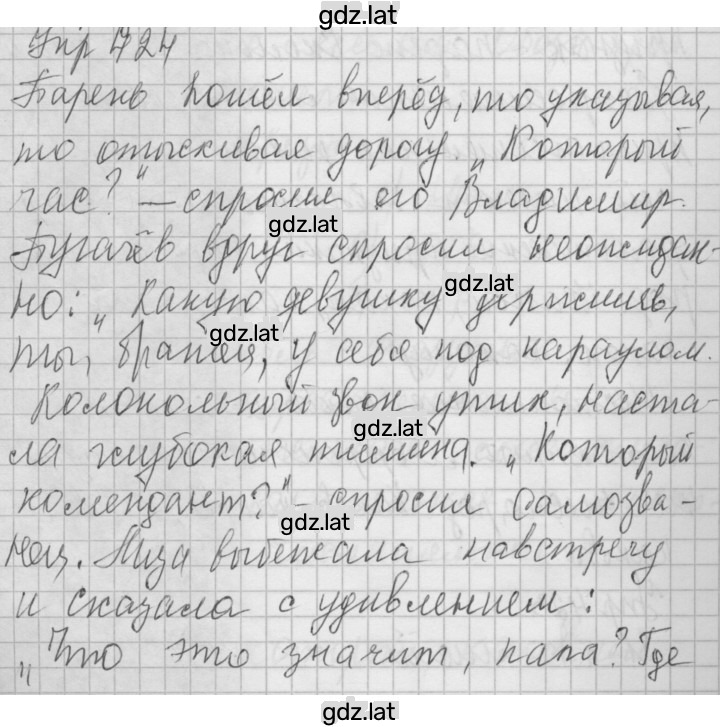 gdz.lat
Упр 424
Парень пошёл вперёд, то указывая,
то отыскивая дорогу. „Который
час?" – спросил его Владимир.
gdz.lat
Пугачёв вдруг спросил неожидан-
но: „Какую девушку держишь,
gdz.lat
ты, братец, у себя под караулом.
gdz.lat
Колокольный звон утих, наста-
ла глубокая тишина. „Который
gdz.lat
комендант?" – спросил самозва-
gdz.lat
нец. Лиза выбежала навстречу
и сказала с удивлением:
gdz.lat
„Что это значит, папа? Где
gdz.lat